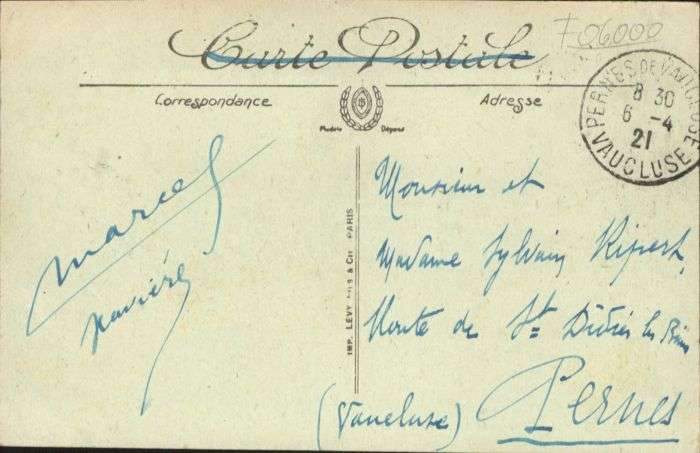 Carte Postale
F 06000
Correspondance
Adresse
Modèle Déposé
PERNES DE VAUCLUSE
8 30
6 -4
21
VAUCLUSE
IMP. LEVY FILS & Cie PARIS
Marcel
Monsieur et
Madame Sylvain Ripert
Route de St Didier les Bains
Pernes
(Vaucluse)